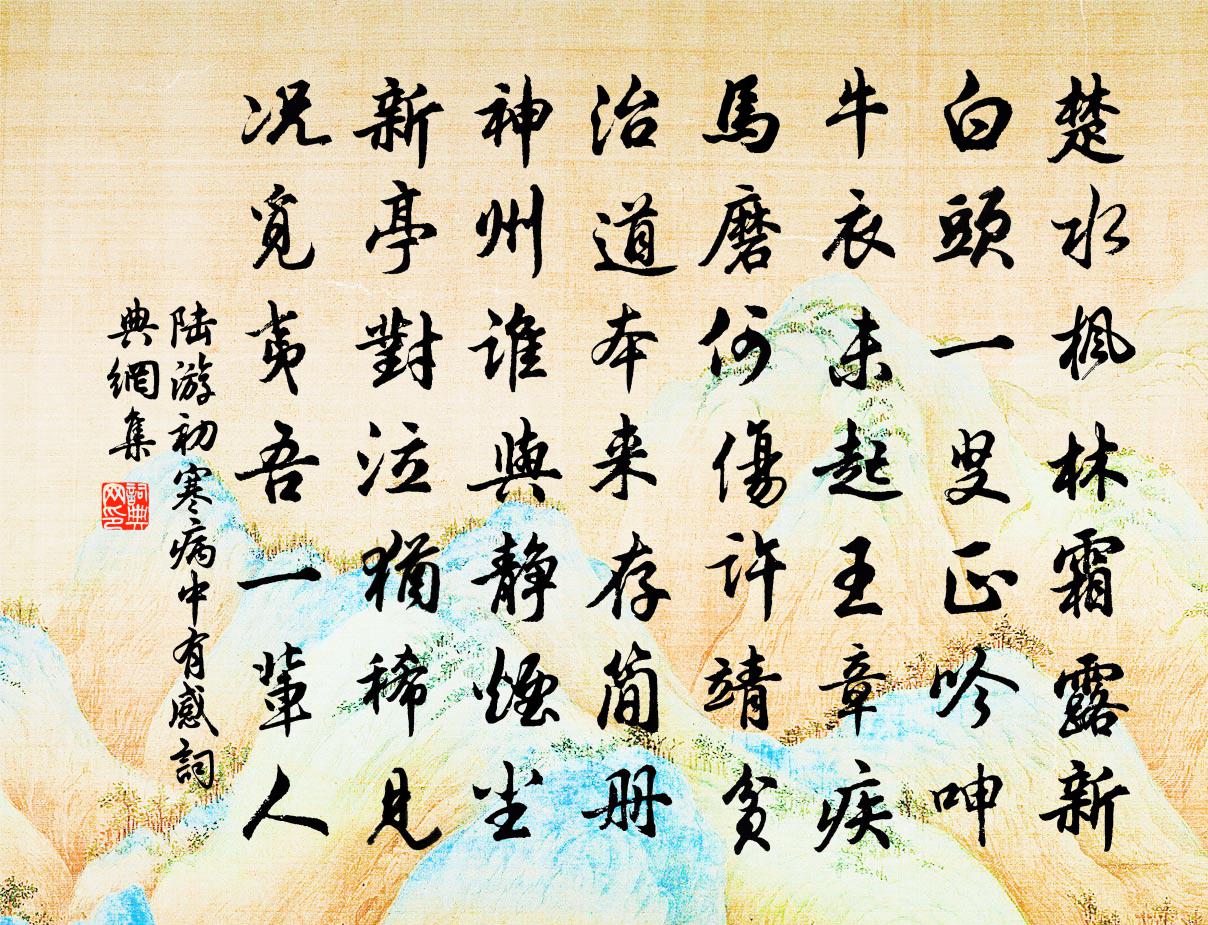 楚水楓林霜露新
白頭一叟正吟呻
牛衣未起王章疾
馬磨何傷許靖貧
治道本来存简册
神州誰與静煙尘
新亭對泣猶稀見
况覓夷吾一輩人
陆游初寒病中有感詞
典網集
詞典
网印